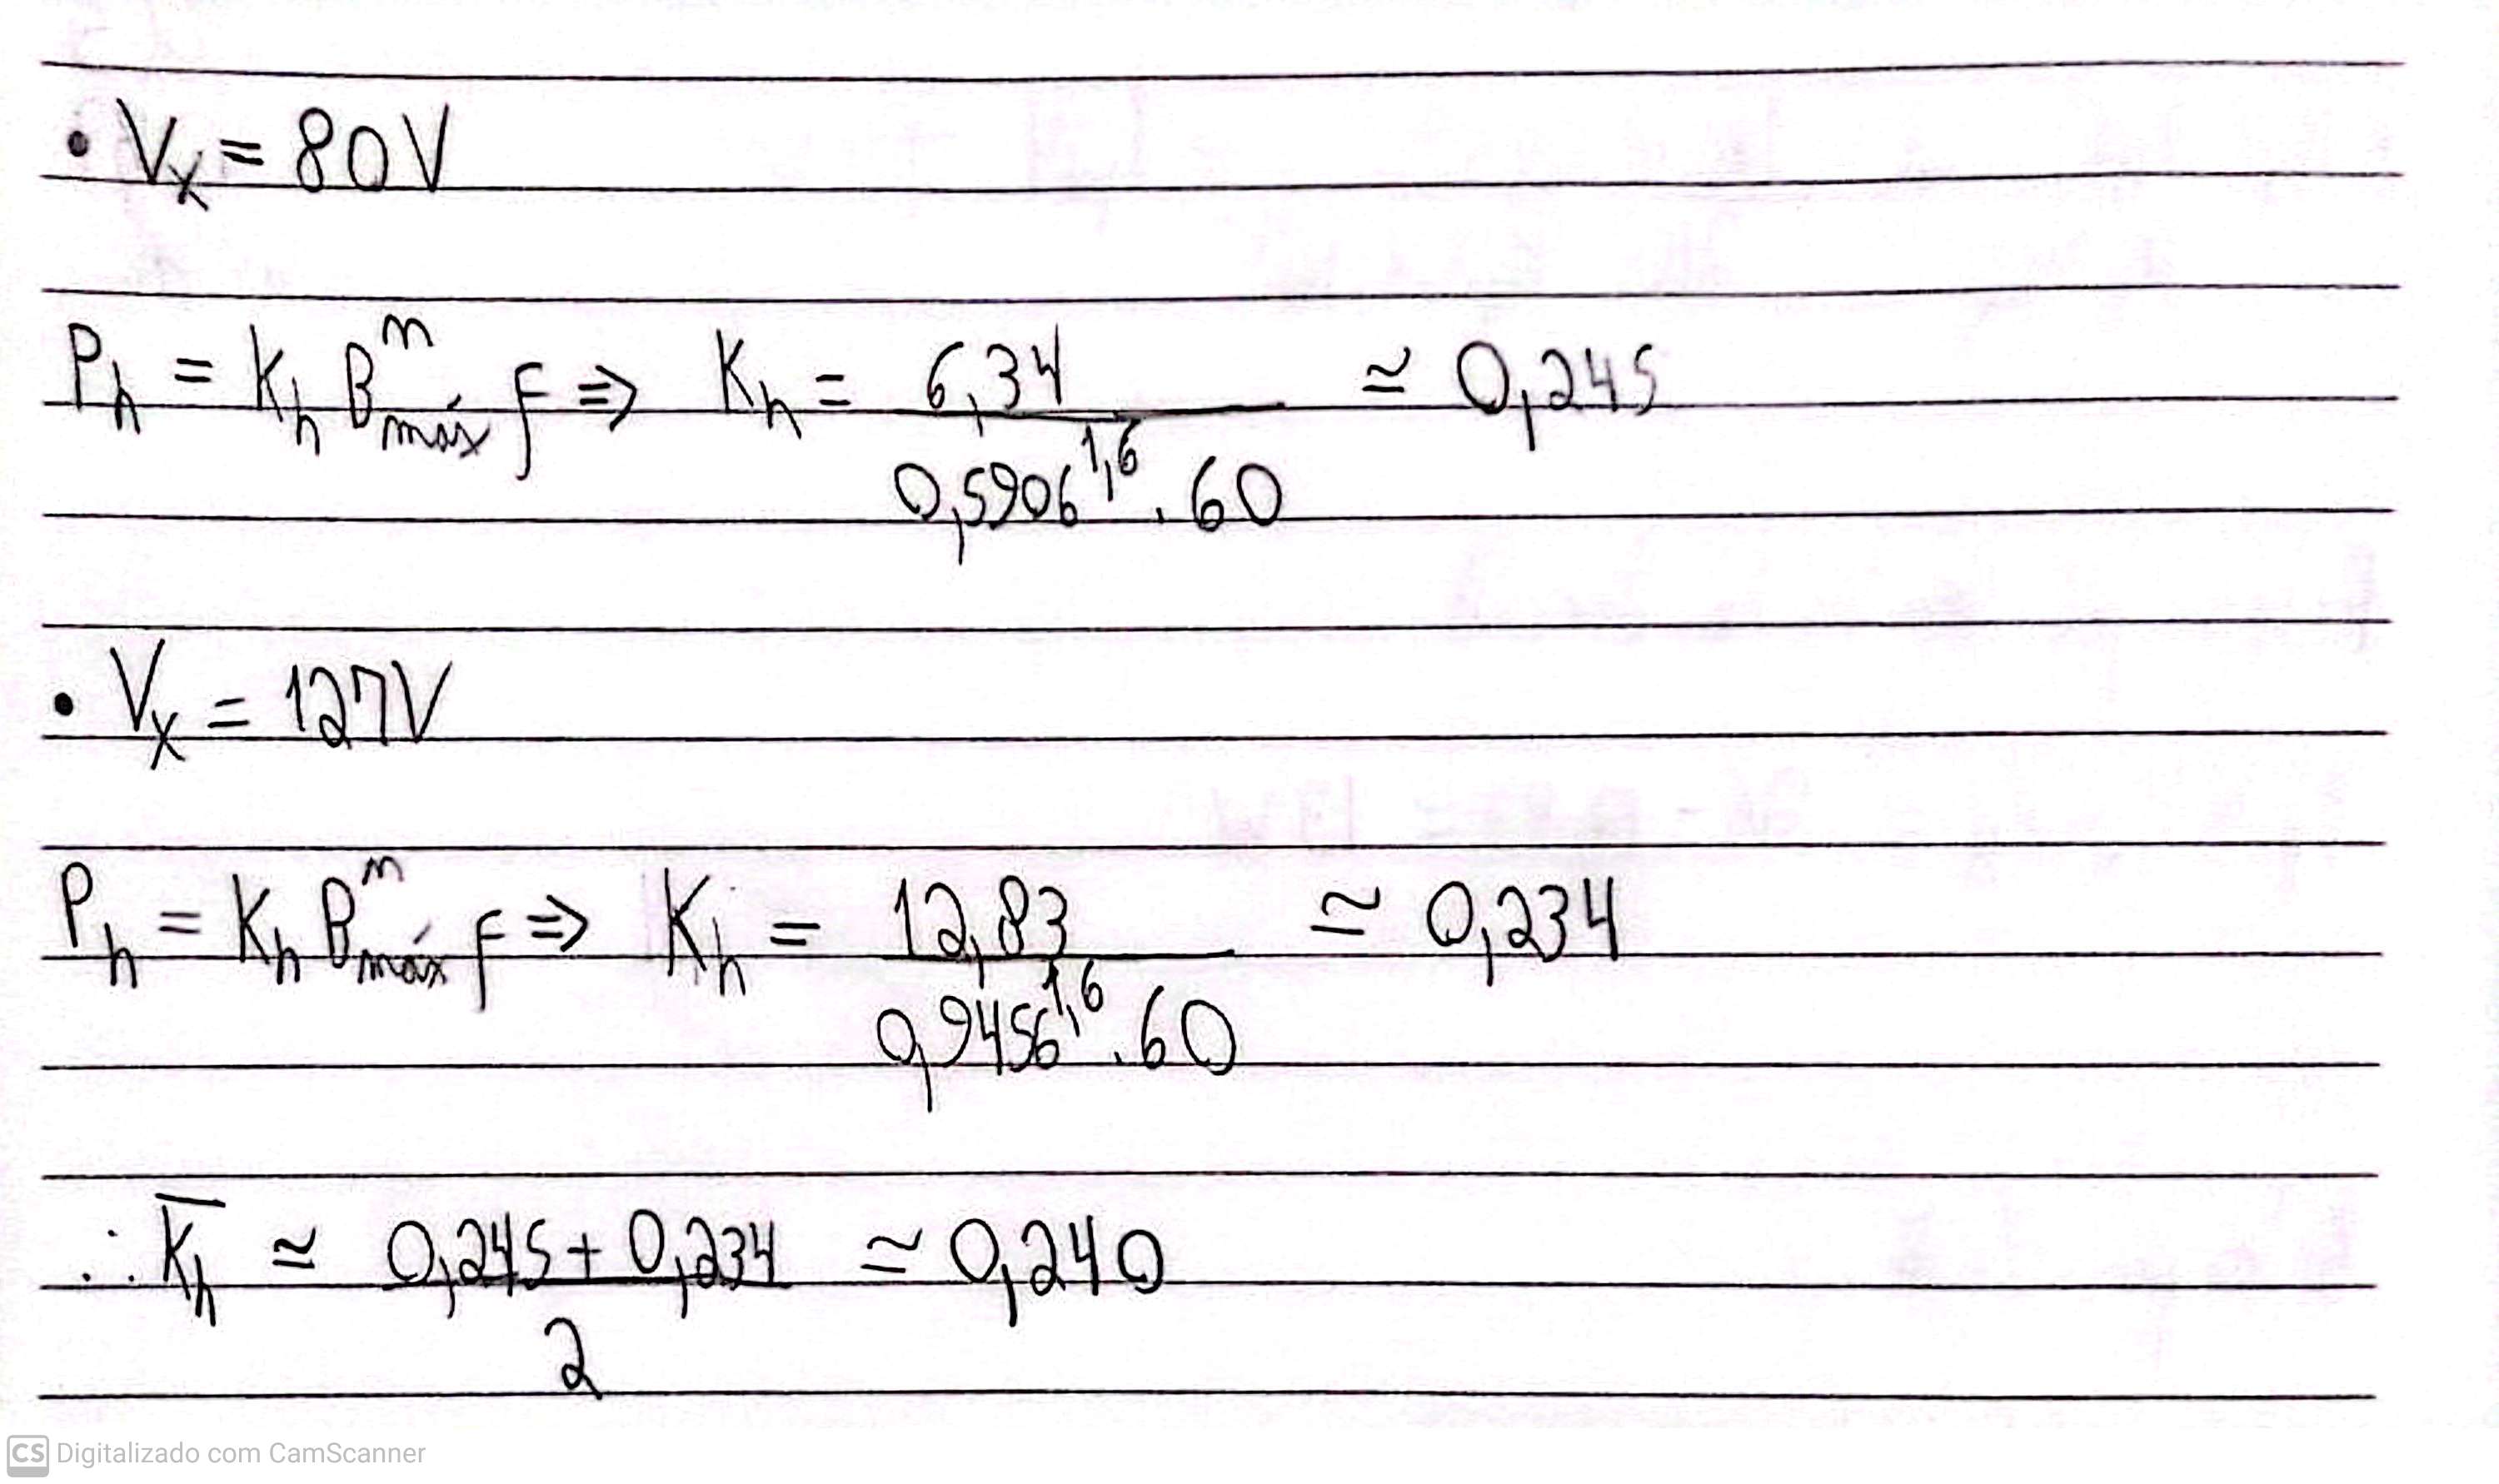 • Vx = 80V
Ph = Kh B^n máx f ⇒ Kh = 6,34 / 0,5906^1,6 . 60 ≃ 0,245
• Vx = 127V
Ph = Kh B^n máx f ⇒ Kh = 12,83 / 0,9456^1,6 . 60 ≃ 0,234
∴ K̅h ≃ 0,245 + 0,234 / 2 ≃ 0,240
CS Digitalizado com CamScanner